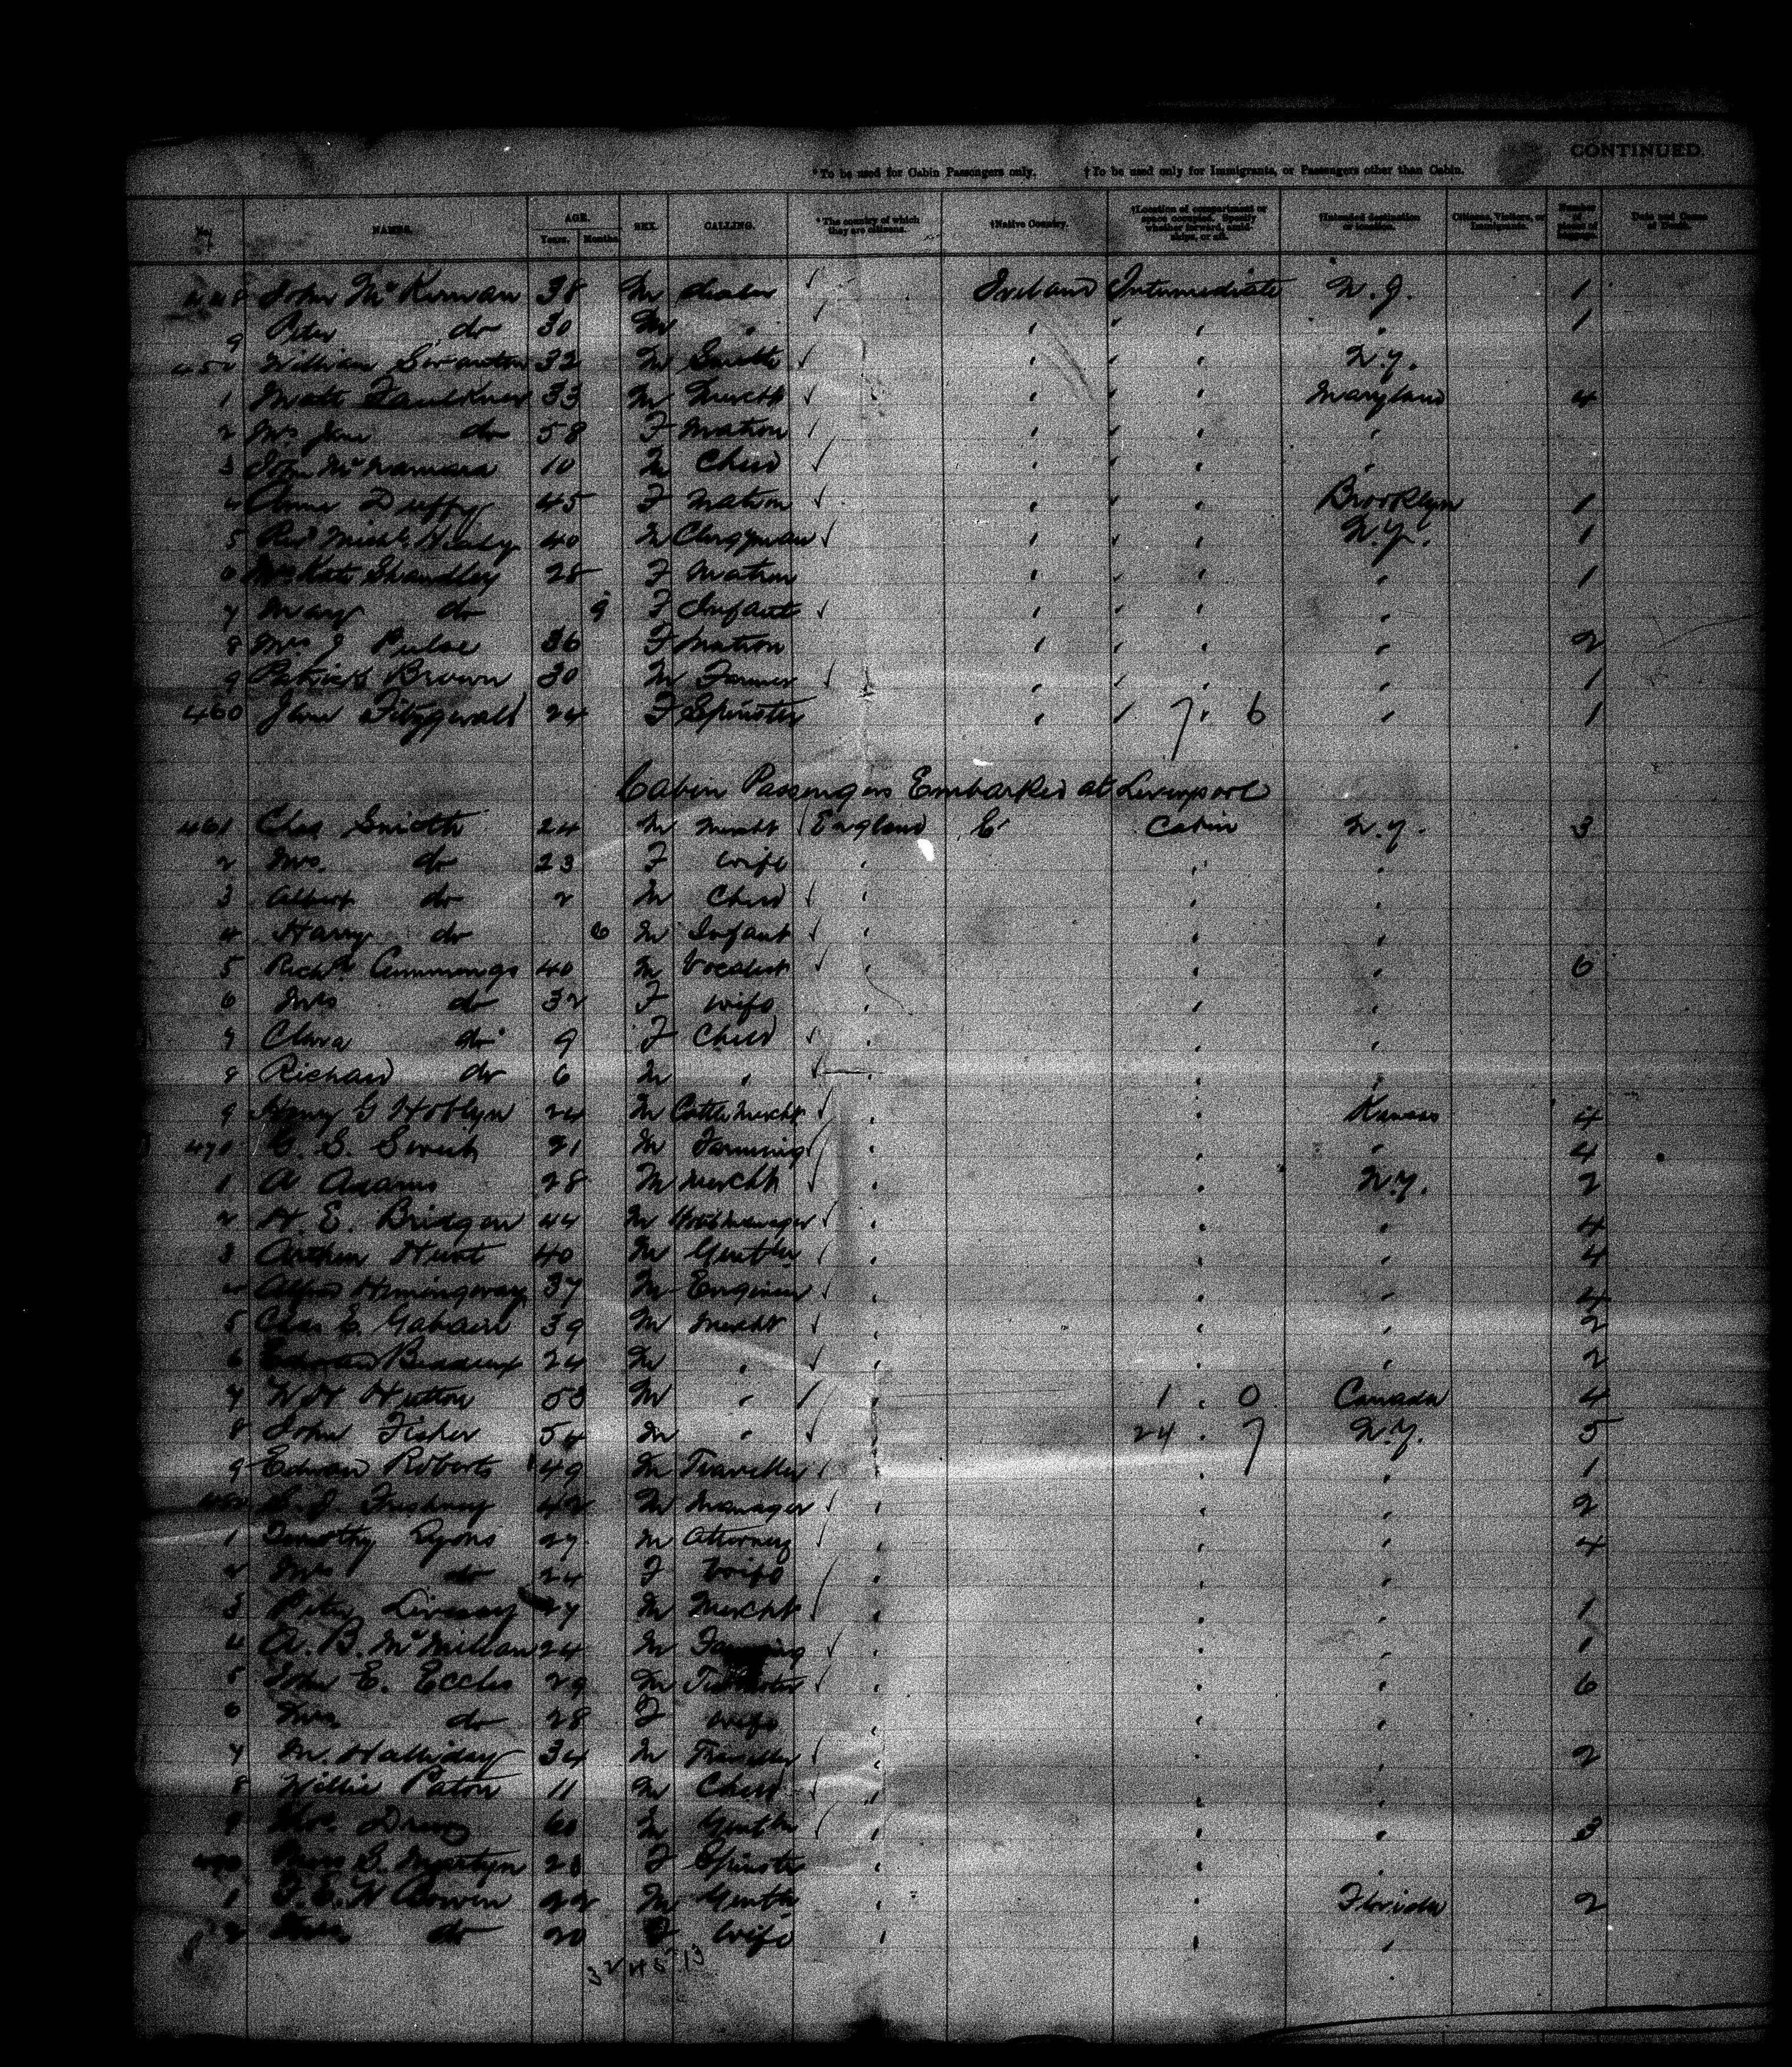 CONTINUED.
*To be used for Cabin Passengers only. †To be used only for Immigrants, or Passengers other than Cabin.
No. NAMES. AGE. Years. Months. SEX. CALLING. *The country of which they are citizens. †Native Country. †Location of compartment or space occupied. Specify whether forward, amidships, or aft. †Intended destination or location. Citizens, Visitors, or Immigrants. Number of pieces of baggage. Date and Cause of Death.
448 John McKiernan 38 M Ireland Intermediate N.J. 1
9 Peter do 30 M 1
450 William Swanton 32 M Smith N.Y.
1 Matt Faulkner 33 M Mercht Maryland 4
2 Mrs Jane do 58 F Matron
3 John McNamara 10 M Child
4 Anne Duffy 45 F Matron Brooklyn 1
5 Revd Michl Healy 40 M Clergyman N.Y. 1
6 Mrs Kate Shandley 28 F Matron 1
7 Mary do 9 F Infant
8 Mrs J 36 F Matron 2
9 Patrick Brown 30 M Farmer 1
460 Jane Fitzgerald 24 F Spinster 7 6 1
Cabin Passengers Embarked at Liverpool
461 Chas Smith 24 M Mercht England C Cabin N.Y. 3
2 Mrs. do 23 F wife
3 Albert do 2 M Child
4 Harry do 6 M Infant
5 Richd Cummings 40 M Vocalist 6
6 Mrs do 32 F wife
7 Clara do 9 F Child
8 Richard do 6 M
9 Henry G Hoblyn 24 M Cattle Mercht Kansas 4
470 21 M Farming 4
1 A Adams 28 M Mercht N.Y. 2
2 H. E. Bridger 44 M Hotel Manager 4
3 Arthur Hunt 40 M Gentln 4
4 Alfred Hemingway 37 M Engineer 4
5 Chas E. 39 M Mercht 2
6 Edward 24 M 2
7 W H Hutton 53 M 1 0 Canada 4
8 John Fisher 54 M 24 7 N.Y. 5
9 Edward Roberts 49 M Traveller 1
480 Freshney 42 M Manager 2
1 Timothy Lyons 27 M Attorney 4
2 Mrs do 24 F Wife
3 Peter Livesay M Mercht 1
4 A. B. McMillan 24 M Farming 1
5 John E. Eccles 29 M 6
6 Mrs do 28 F wife
7 M. Halliday 34 M Traveller 2
8 Willie Paton 11 M Child
9 60 M Gentln 3
490 Miss S. Martyn F Spinster
1 Bowen 22 M Gentln Florida 2
2 Mrs do 20 F Wife